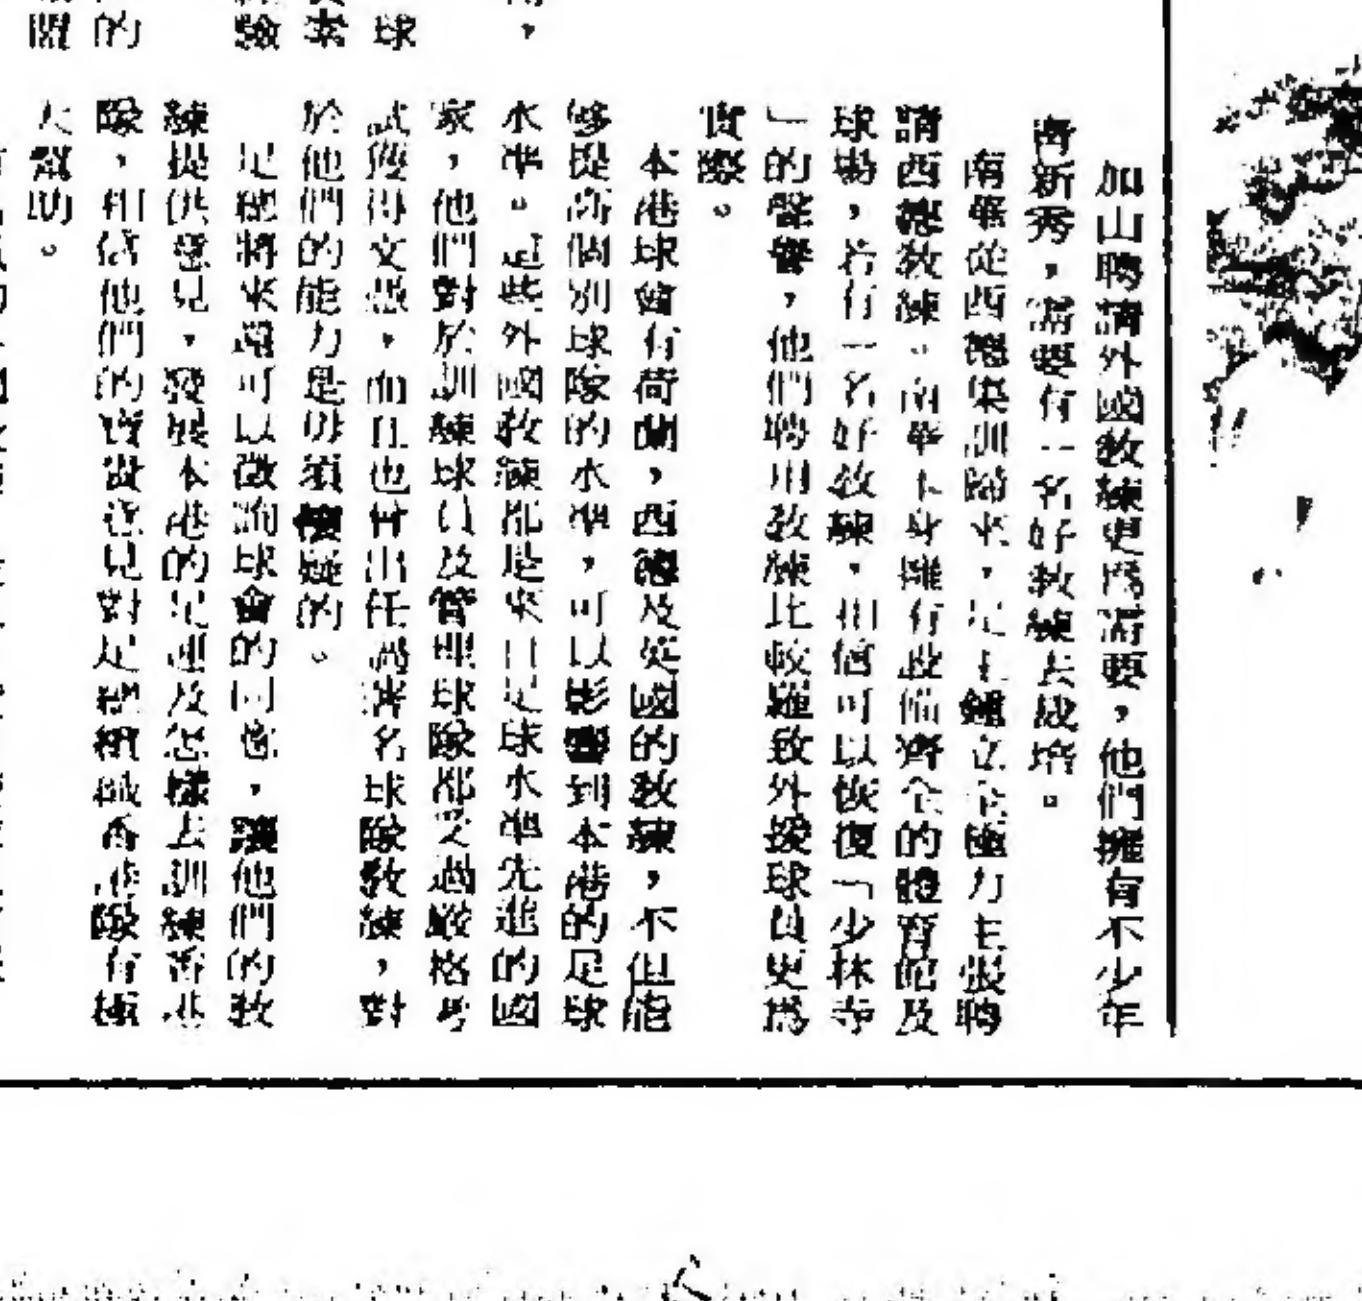 加山聘請外國教練更爲需要，他們擁有不少年
青新秀，需要有一名好教練去栽培。
南華從西德集訓歸來，足主鍾立全極力主張聘
請西德教練。南華本身擁有設備齊全的體育館及
球場，若有一名好教練，相信可以恢復「少林寺
」的聲譽，他們聘用教練比較羅致外援球員更爲
實際。
本港球會有荷蘭，西德及英國的教練，不但能
够提高個別球隊的水準，可以影響到本港的足球
水準。這些外國教練都是來自足球水準先進的國
家，他們對於訓練球員及管理球隊都受過嚴格考
試獲得文憑，而且也曾出任過著名球隊教練，對
於他們的能力是毋須懷疑的。
足總將來還可以徵詢球會的同意，讓他們的教
練提供意見，發展本港的足運及怎樣去訓練香港
隊，相信他們的寶貴意見對足總組織香港隊有極
大幫助。